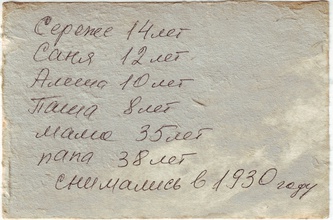 Сереже 14 лет
Саня 12 лет
Алеша 10 лет
Паша 8 лет
мама 35 лет
папа 38 лет
снимались в 1930 году